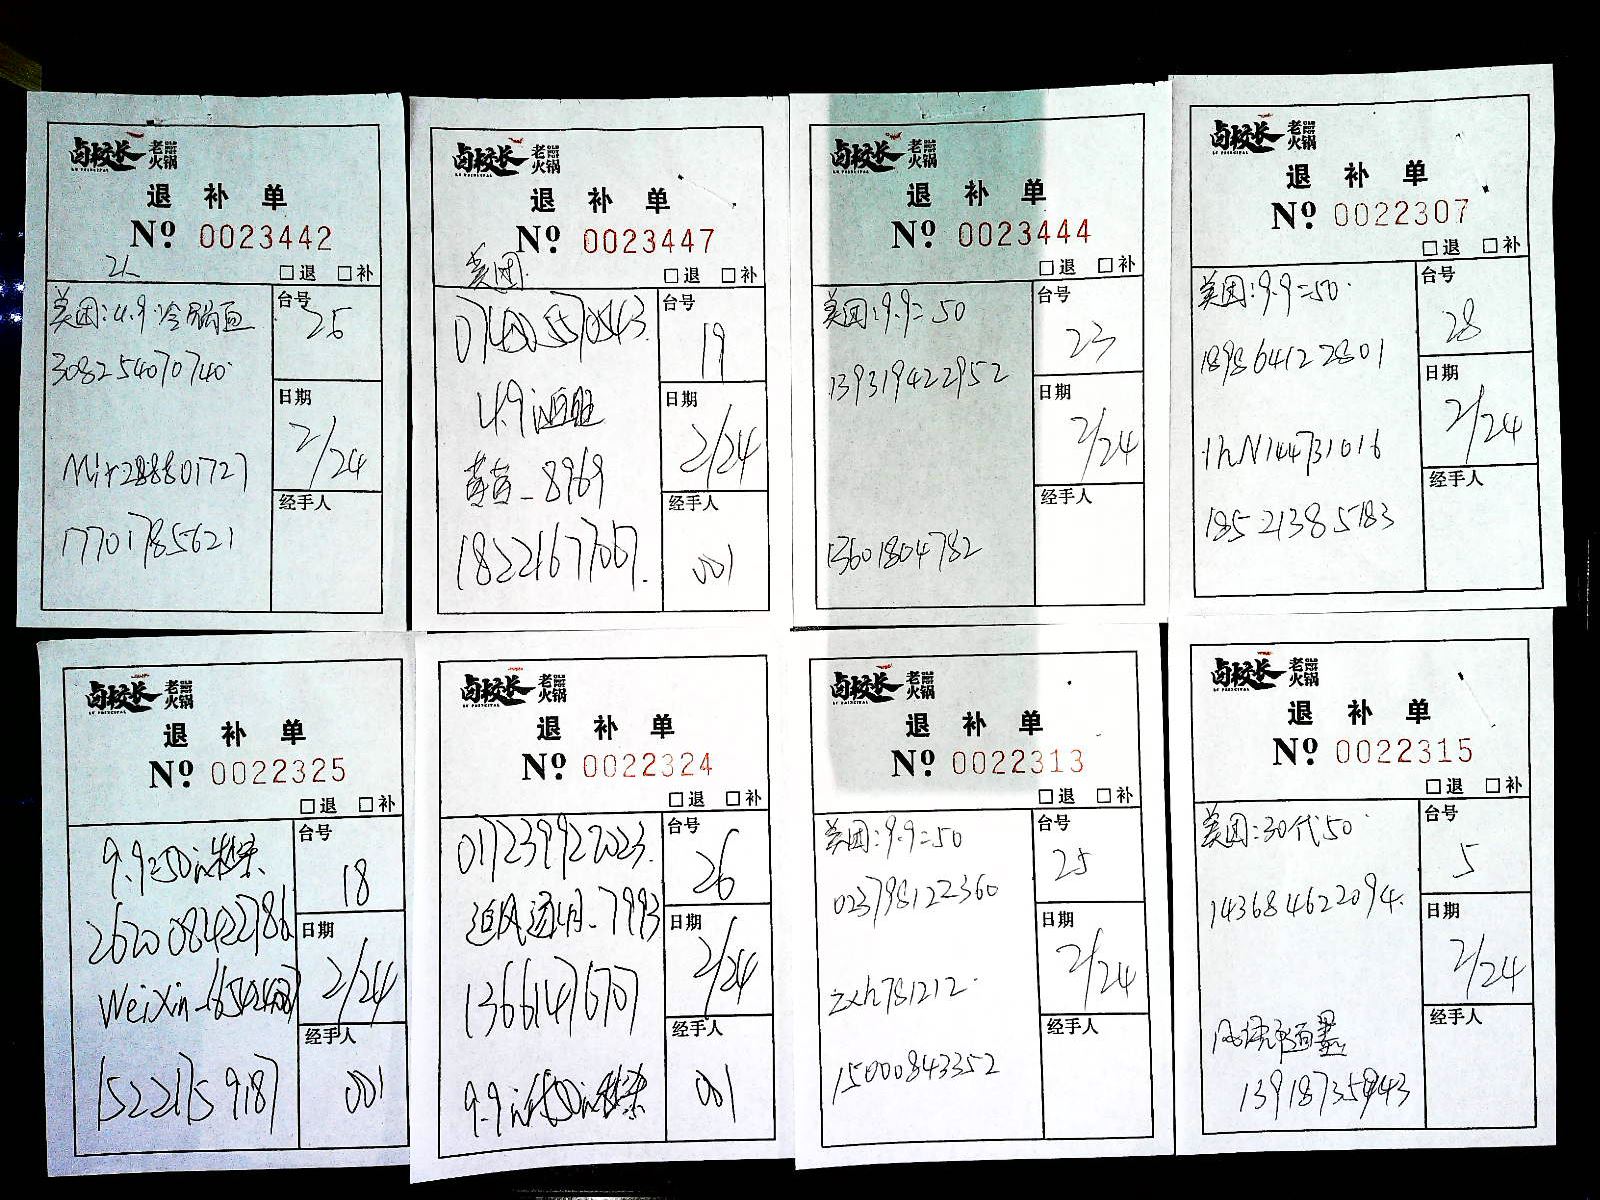 卤校长 老火锅
退 补 单
Nº 0023442
□退 □补
美团:4.9.冷锅鱼
308254070740.
17701785621
台号
25
日期
2/24
经手人
卤校长 老火锅
退 补 单
Nº 0023447
美团
□退 □补
4.9
8969
18221677067.
台号
19
日期
2/24
经手人
001
卤校长 老火锅
退 补 单
Nº 0023444
□退 □补
美团:9.9=50
139319422952
13601804782
台号
23
日期
2/24
经手人
卤校长 老火锅
退 补 单
Nº 0022307
□退 □补
美团:9.9=50.
189864122801
1hN144731016
18521385183
台号
28
日期
2/24
经手人
卤校长 老火锅
退 补 单
Nº 0022325
□退 □补
9.9=50
262008422786
WeiXin
15221759187
台号
18
日期
2/24
经手人
001
卤校长 老火锅
退 补 单
Nº 0022324
□退 □补
017239922023.
7993
13661476707
9.9
台号
26
日期
2/24
经手人
001
卤校长 老火锅
退 补 单
Nº 0022313
□退 □补
美团:9.9=50
023798122360
zxh781212.
15000843352
台号
25
日期
2/24
经手人
卤校长 老火锅
退 补 单
Nº 0022315
□退 □补
美团:30代50.
143684622094.
13918735943
台号
5
日期
2/24
经手人